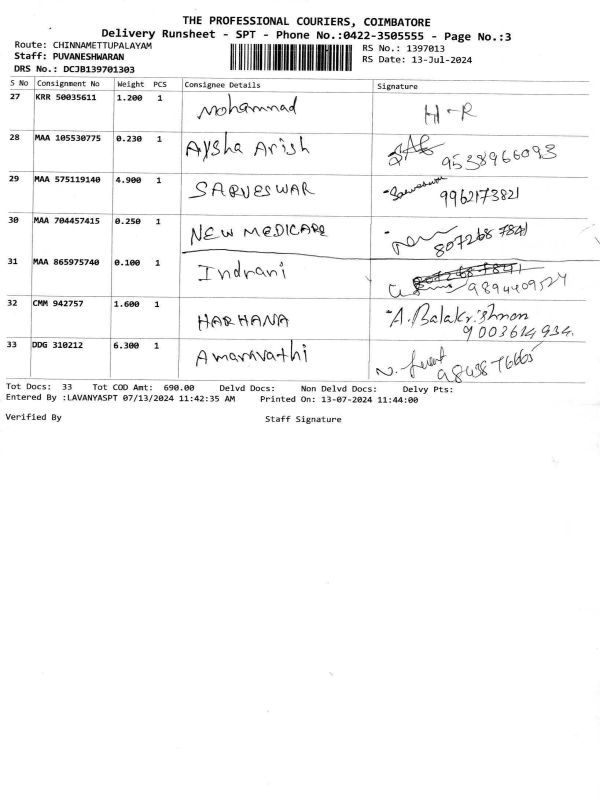 THE PROFESSIONAL COURIERS, COIMBATORE
Delivery Runsheet - SPT - Phone No.:0422-3505555 - Page No.:3
Route: CHINNAMETTUPALAYAM RS No.: 1397013
Staff: PUVANESHWARAN RS Date: 13-Jul-2024
DRS No.: DCJB139701303
S No Consignment No Weight PCS Consignee Details Signature
27 KRR 50035611 1.200 1 Mohammad H-R
28 MAA 105530775 0.230 1 Aysha Arish 9538966093
29 MAA 575119140 4.900 1 SARVESWAR 9962173821
30 MAA 704457415 0.250 1 NEW MEDICARE 8072687841
31 MAA 865975740 0.100 1 Indrani 9894409524
32 CMM 942757 1.600 1 HARHANA A. Balakrishnan
9003614934.
33 DDG 310212 6.300 1 Amaravathi
9843876665
Tot Docs: 33 Tot COD Amt: 690.00 Delvd Docs: Non Delvd Docs: Delvy Pts:
Entered By :LAVANYASPT 07/13/2024 11:42:35 AM Printed On: 13-07-2024 11:44:00
Verified By Staff Signature